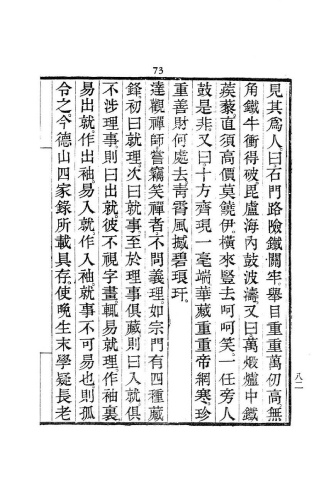 73
見其爲人曰石門路險鐵關牢舉目重重萬仞高無
角鐵牛衝得破毘盧海內鼓波濤又曰萬煅爐中鐵
蒺藜直須高價莫饒伊橫來豎去呵呵笑一任旁人
鼓是非又曰十方齊現一毫端華藏重重帝網寒珍
重善財何處去靑霄風撼碧琅玕
達觀禪師嘗竊笑禪者不問義理如宗門有四種藏
鋒初曰就理次曰就事至於理事俱藏則曰入就俱
不涉理事則曰出就彼不視字畫輒易就理作袖裏
易出就作出袖易入就作入袖就事不可易也則孤
令之今德山四家錄所載具存使晚生末學疑長老
八二